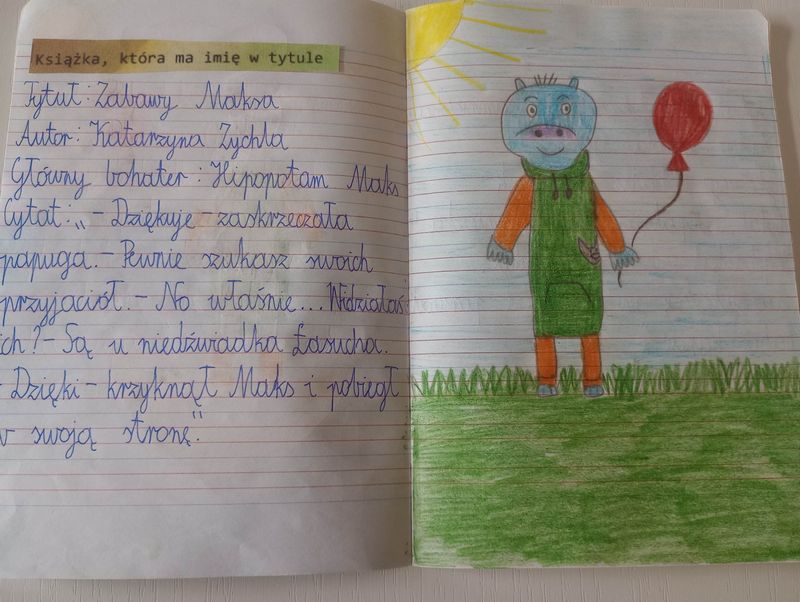 Książka, która ma imię w tytule
Tytuł: Zabawy Maksa
Autor: Katarzyna Zychla
Główny bohater: Hipopotam Maks
Cytat: „- Dziękuje - zaskrzeczała
papuga. - Pewnie szukasz swoich
przyjaciół. - No właśnie... Widziałaś
ich? - Są u niedźwiadka Łasucha.
- Dzięki - krzyknął Maks i pobiegł
w swoją stronę."